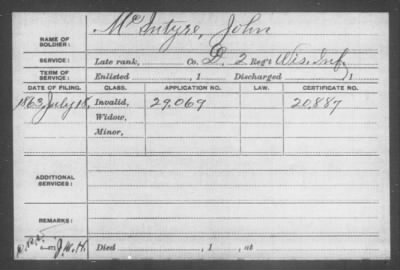 NAME OF SOLDIER: McIntyre, John
SERVICE: Late rank, Co. D, 2 Reg't Wis. Inf.
TERM OF SERVICE: Enlisted , 1 Discharged , 1
DATE OF FILING. CLASS. APPLICATION NO. LAW. CERTIFICATE NO.
1863, July 18, Invalid, 29,069 20,887
Widow,
Minor,
ADDITIONAL SERVICES:
REMARKS:
J.W.H. Died , 1 , at